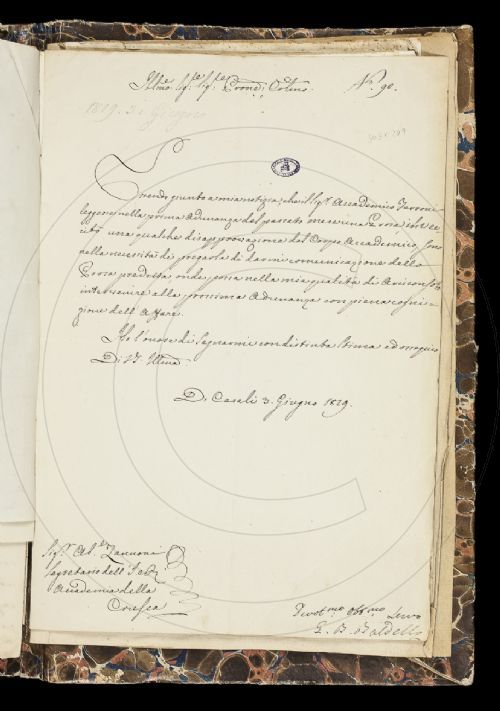 Illmo Sig:re Sig:re Pron: Colmo N.° 90.
1829. 3. Giugno
Essendo giunto a mia notizia che il Sig.r Accademico
leggesse nella prima Adunanza del passato mese una Prosa che ec=
citò una qualche disapprovazione del Corpo Accademico, sono
nella necessità di pregarla di darmi comunicazione della
Prosa predetta onde possa nella mia qualità di Arciconsolo
intervenire alla prossima Adunanza con piena cogni=
zione dell'Affare.
Ho l'onore di segnarmi con distinta stima ed ossequio
Di V.S. Illma
Di Casa li 3. Giugno 1829.
Sig.r Ab.te Zannoni
Segretario dell' I. e R.
Accademia della
Crusca
Devot.mo obb.mo Servo
G. B. Baldelli